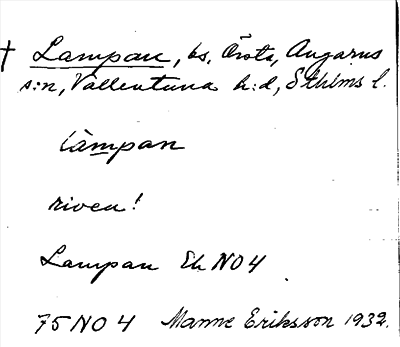 † Lampan, bs. Örsta, Angarns
s:n, Vallentuna h:d, Sthlms l.
làmpan
riven!
Lampan Ek NO4
75 NO 4 Manne Eriksson 1932.